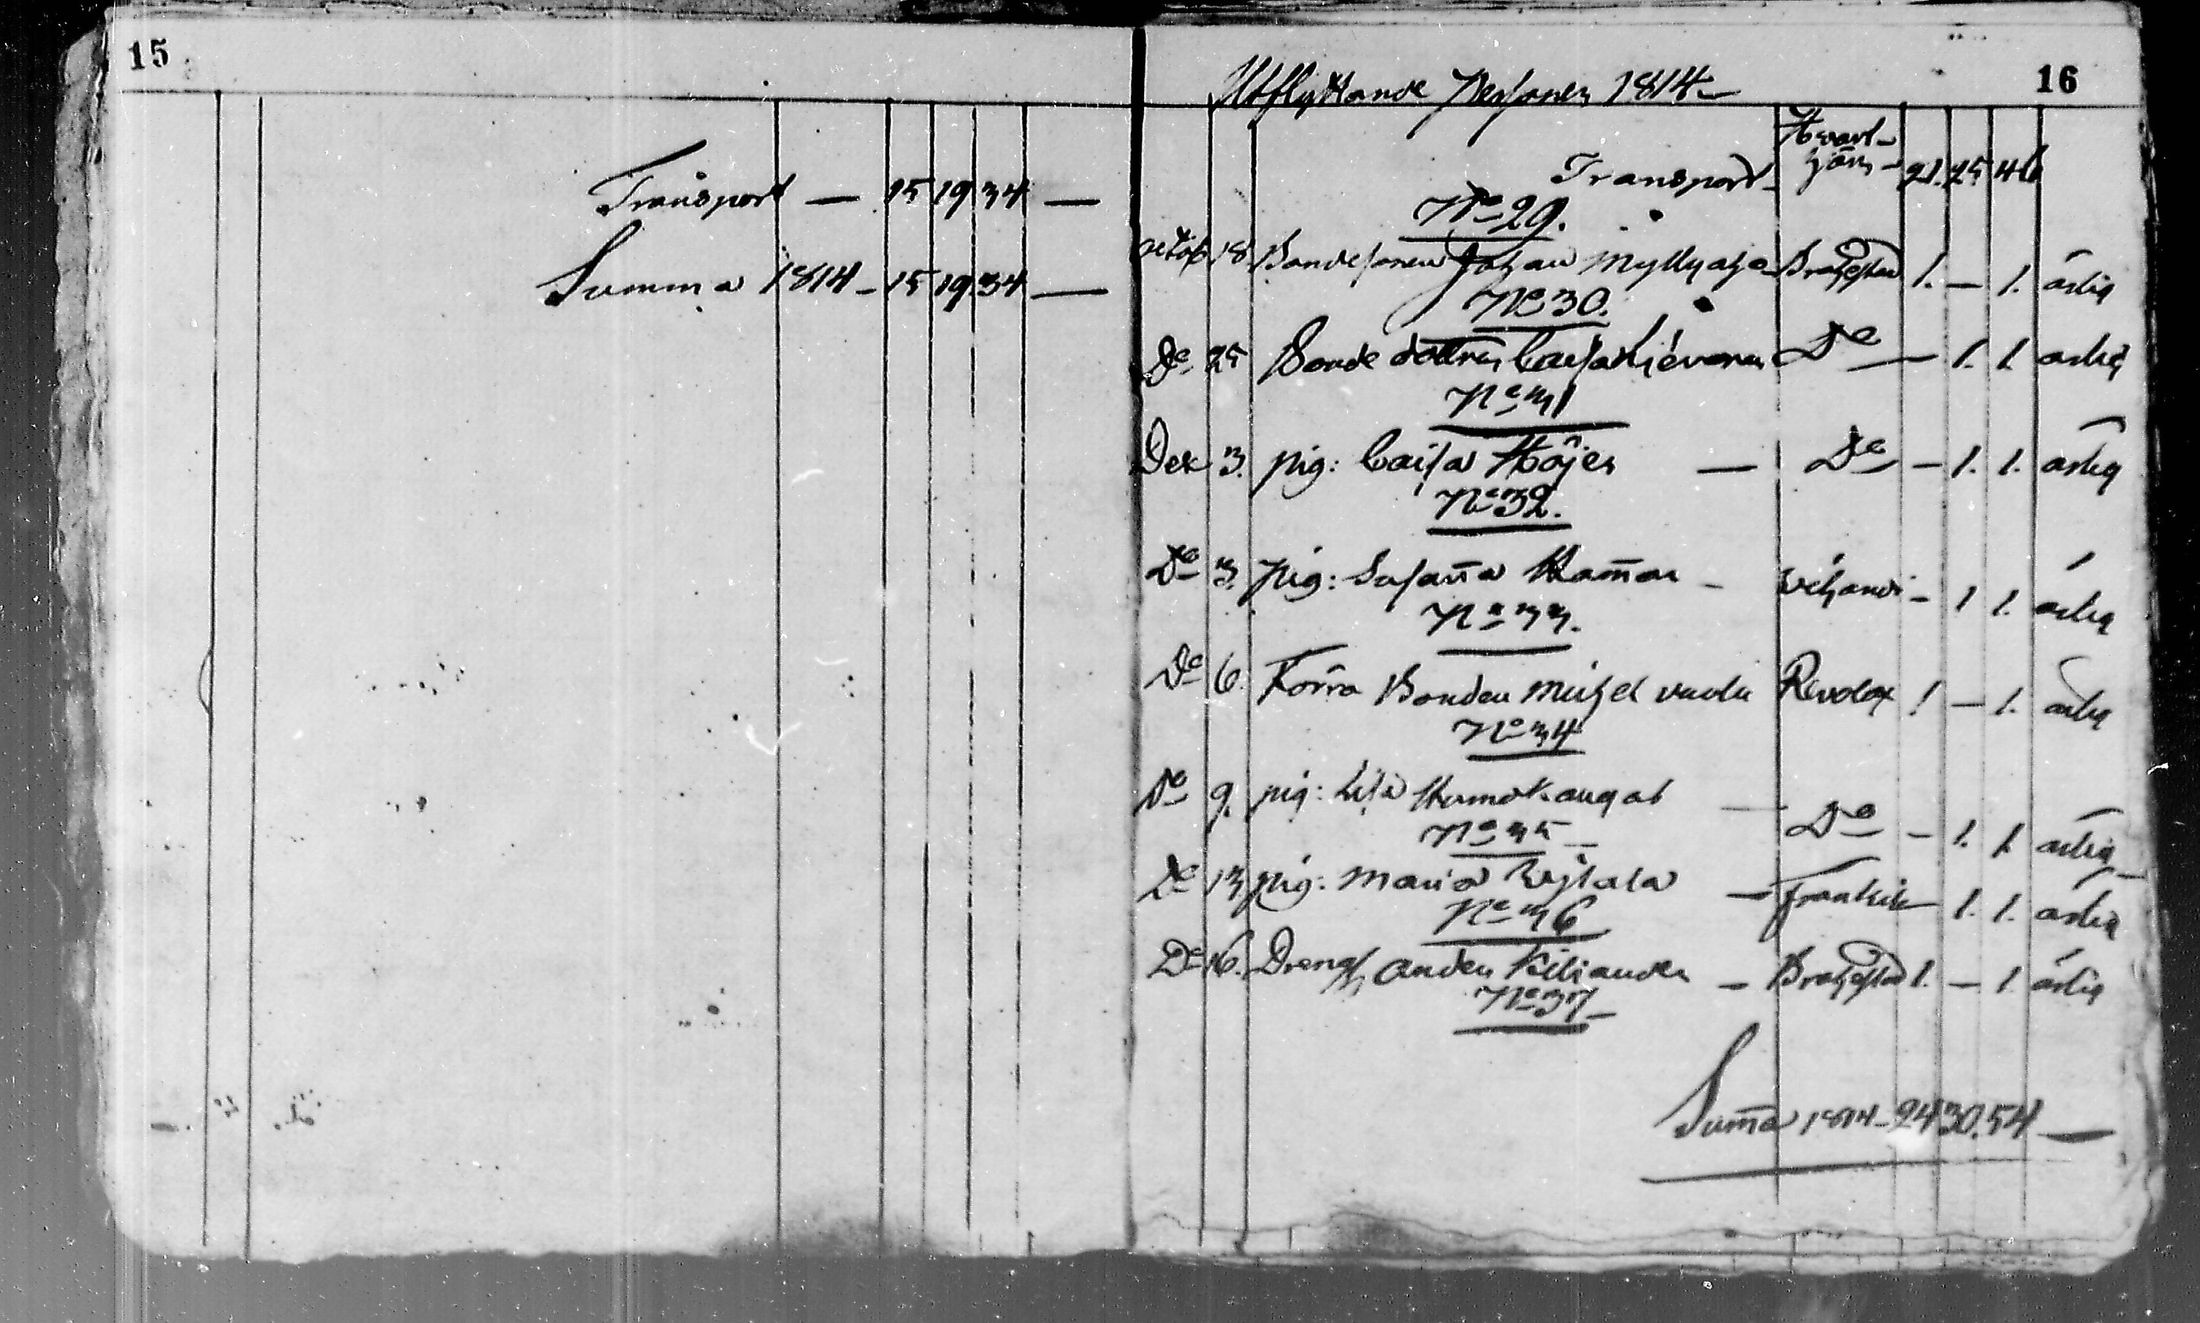 15
Transport — 15 19 34 —
Summa 1814 - 15 19 34 —
16
Utflyttande Personer 1814 —
Hvart-
Transport - 21. 25 46
No 29.
octob 18. Bondesonen Johan Myllyoja - Brahestad 1. — 1. ärlig
No 30.
Do 25 Bonde dottren Caisa Do — 1. 1 ärlig
No 31
Dec 3. pig: Caisa Höijer — Do — 1. 1. ärlig
No 32.
Do 3. pig: Susanna Hamar - Vihandi - 1 1. ärlig
No 33.
Do 6. Förra Bonden Michel Revolax 1 — 1. ärlig
No 34
Do 9. pig: Lisa — Do - 1. 1 ärlig
No 35 —
Do 13 pig: Maria — Frantsila 1. 1. ärlig
No 36
Do 16. Drengen Anders Kiliander - Brahestad 1. — 1 ärlig
No 37 —
Summa 1814 - 24 30. 54 —